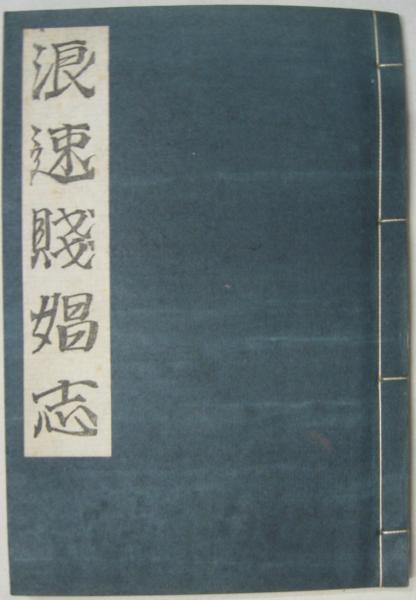 浪速賤娼志